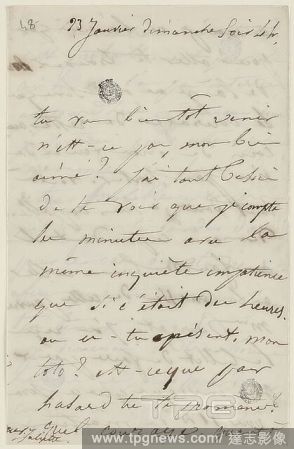 48
23 Janvier dimanche soir 4 h.
tu vas bientôt venir
n'est-ce pas, mon bien
aimé? J'ai tant besoin
de te voir que je compte
les minutes avec la
même inquiète impatience
que si c'était des heures.
où es-tu à présent, mon
toto? est-ce que par
hasard tu te promènes?
quel courage
Juliette
TPG
www.tpgnews.com 達志影像